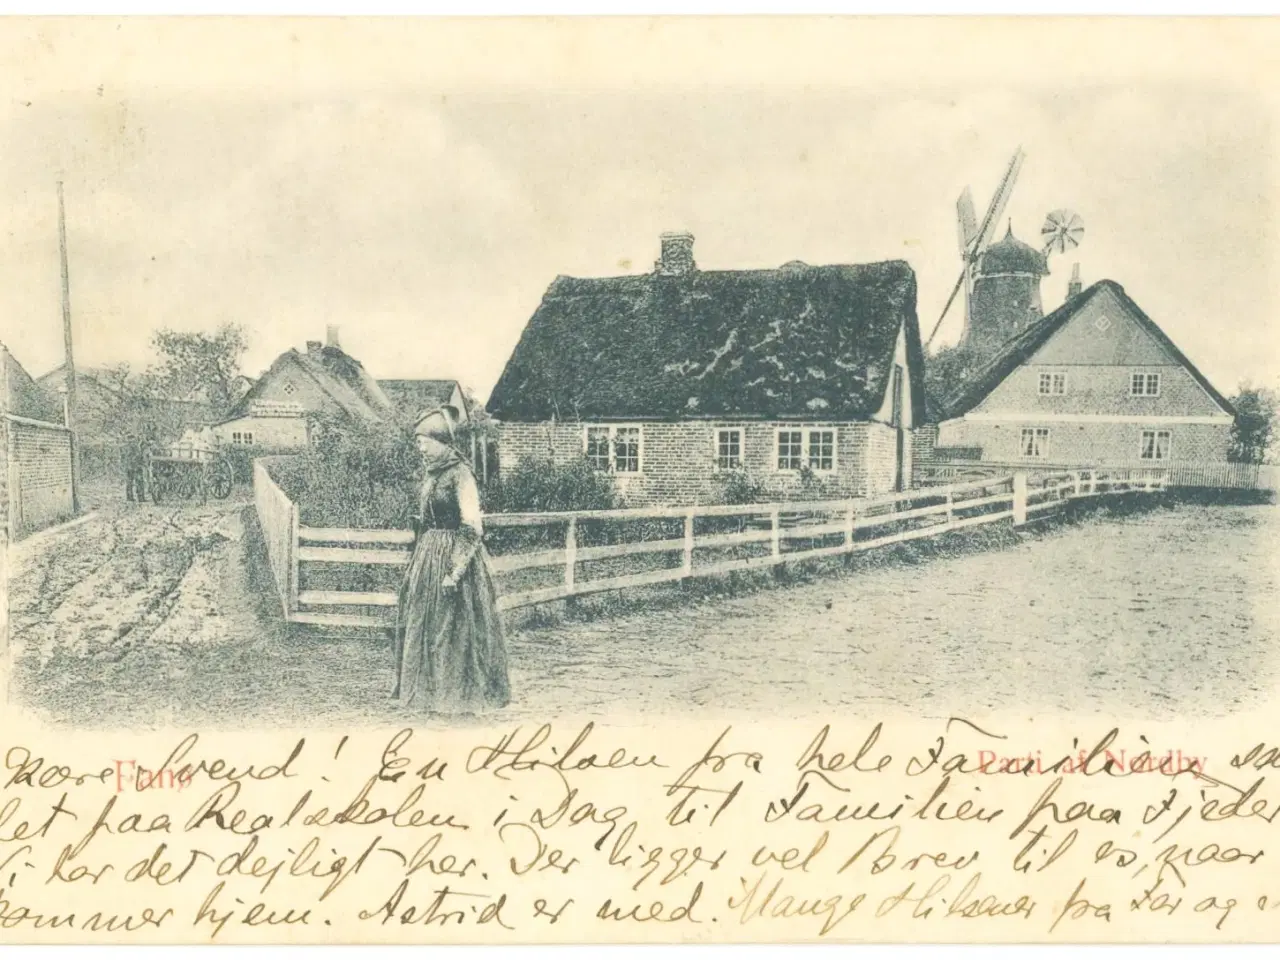 Fanø
Parti af Nordby
Kære Svend! En Hilsen fra hele Familien
paa Realskolen i Dag til Familien paa
Vi har det dejligt her. Der ligger vel Brev til os, naar
kommer hjem. Astrid er med. Mange Hilsener fra Far og